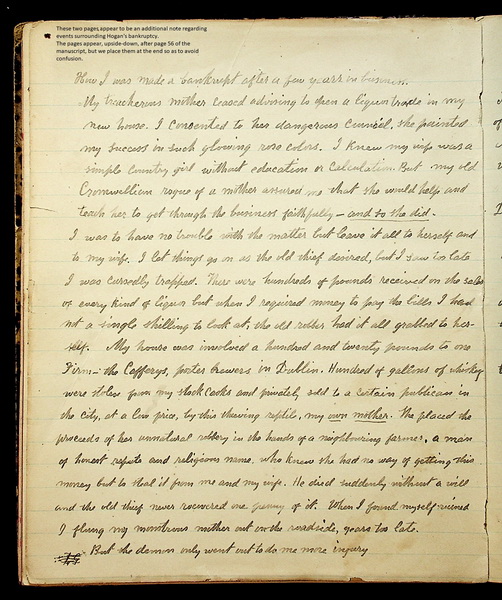 These two pages appear to be an additional note regarding
events surrounding Hogan's bankruptcy.
The pages appear, upside-down, after page 56 of the
manuscript, but we place them at the end so as to avoid
confusion.
How I was made a bankrupt after a few years in business.
My treacherous mother teased advising to open a liquor trade in my
new house. I consented to her dangerous council, she painted
my success in such glowing rose colors. I knew my wife was a
simple country girl without education or calculation. But my old
Cromwellian rogue of a mother assured me that she would help and
teach her to get through the business faithfully – and so she did.
I was to have no trouble with the matter but leave it all to herself and
to my wife. I let things go on as the old thief desired, but I saw too late
I was cursedly trapped. There were hundreds of pounds received on the sales
of every kind of liquor but when I required money to pay the bills I had
not a single shilling to look at, the old robber had it all grabbed to her-
self. My house was involved a hundred and twenty pounds to one
Firm – the Cafferys, porter brewers in Dublin. Hundred of gallons of whiskey
were stolen from my stock casks and privately sold to a certain publican in
the city, at a low price, by this thieving reptile, my own mother. She placed the
proceeds of her unnatural robbery in the hands of a neighbouring farmer, a man
of honest repute and religious name, who knew she had no way of getting this
money but to steal it from me and my wife. He died suddenly without a will
and the old thief never recovered one penny of it. When I found myself ruined
I flung my monstrous mother out on the roadside, years too late.
But the demon only went out to do me more injury